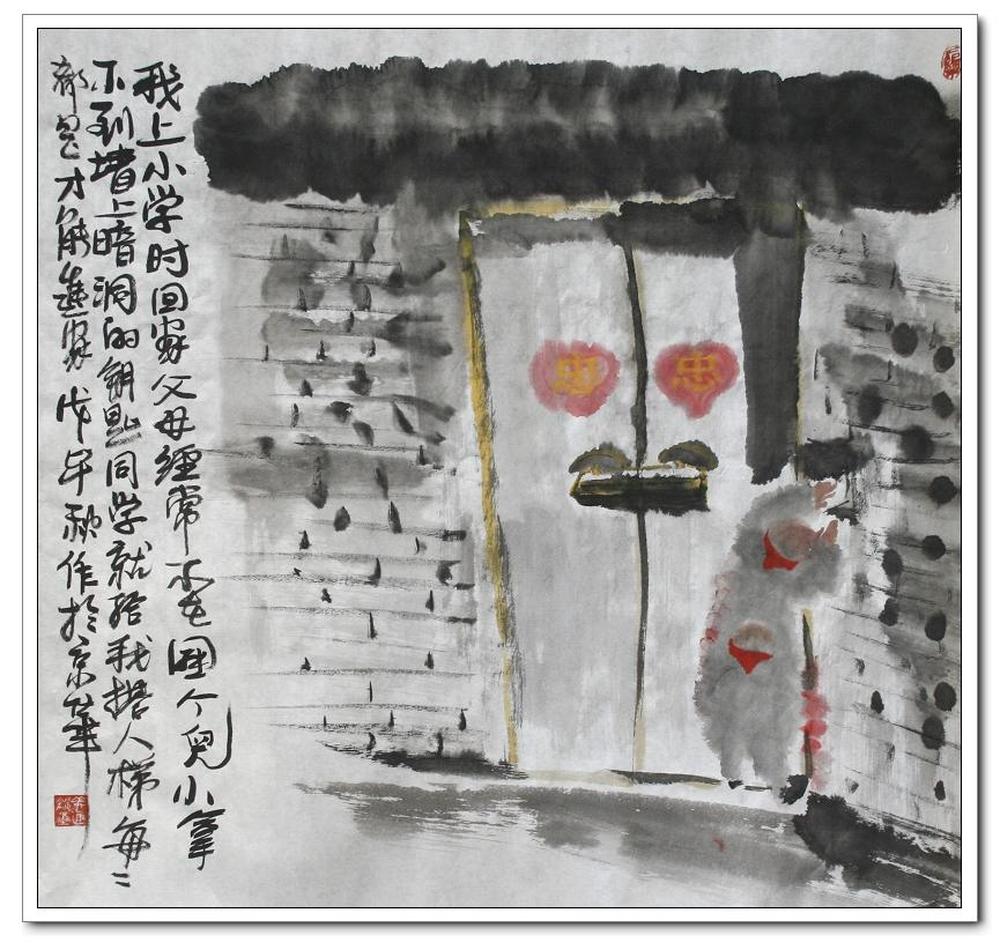 我上小学时回家父母经常不在因个儿小拿
不到墙上暗洞的钥匙同学就给我搭人梯每二
都是才能进家戊午秋作于京华
忠 忠